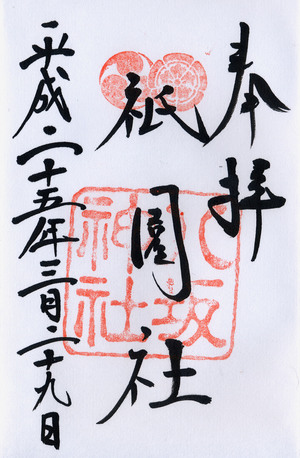 奉拝
祇園社
八坂
神社
平成二十五年三月二十九日